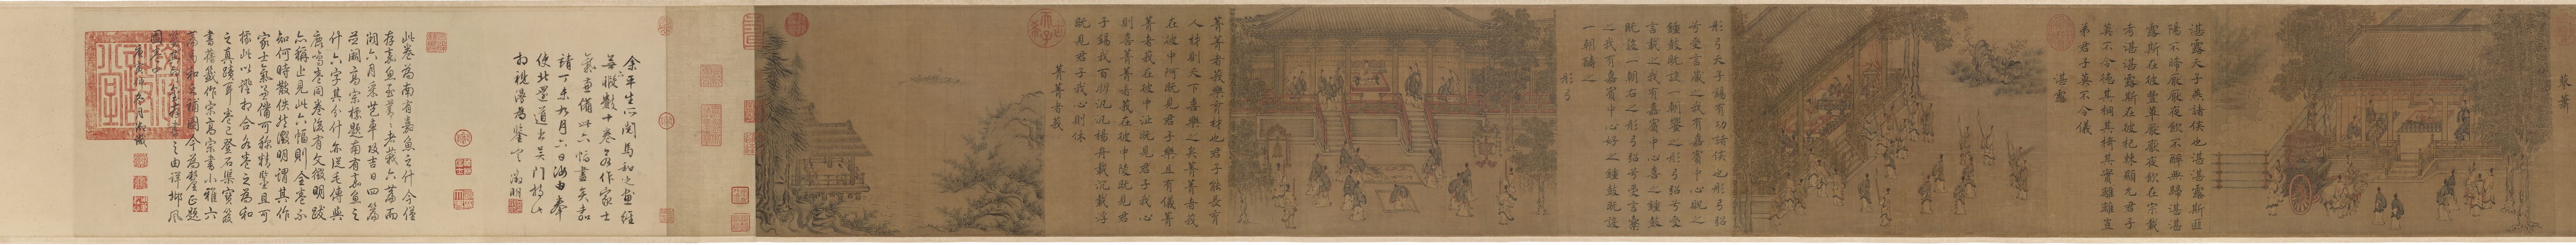 蓼蕭
湛露天子燕諸侯也湛湛露斯匪
陽不晞厭厭夜飲不醉無歸湛湛
露斯在彼豐草厭厭夜飲在宗載
考湛湛露斯在彼杞棘顯允君子
莫不令德其桐其椅其實離離豈
弟君子莫不令儀
湛露
彤弓天子錫有功諸侯也彤弓弨
兮受言藏之我有嘉賓中心貺之
鍾鼓既設一朝饗之彤弓弨兮受
言載之我有嘉賓中心喜之鍾鼓
既設一朝右之彤弓弨兮受言櫜
之我有嘉賓中心好之鍾鼓既設
一朝醻之
彤弓
菁菁者莪樂育材也君子能長育
人材則天下喜樂之矣菁菁者莪
在彼中阿既見君子樂且有儀菁
菁者莪在彼中沚既見君子我心
則喜菁菁者莪在彼中陵既見君
子錫我百朋汎汎楊舟載沉載浮
既見君子我心則休
菁菁者莪
余平生所閱馬和之畫經
無慮數十卷各作家士
氣兼備此六幅盡矣
請丁未九月六日
使北還道出吳門持以
相視漫為鑒定 徵明
此卷為南有嘉魚之什今僅
存嘉魚至菁菁者莪六篇而
闕六月采芑車攻吉日四篇
並闕高宗標題南有嘉魚之
什六字其分什亦從毛傳與
鹿鳴卷同卷後有文徵明跋
亦稱止見此六幅則全卷不
知何時散佚然徵明謂其作
家士氣兼備可稱精鑒且可
之真蹟耳卷已登石渠寶笈
書舊籤作宋高宗書小雅六
篇馬和之補圖今為釐正題
圖卷中